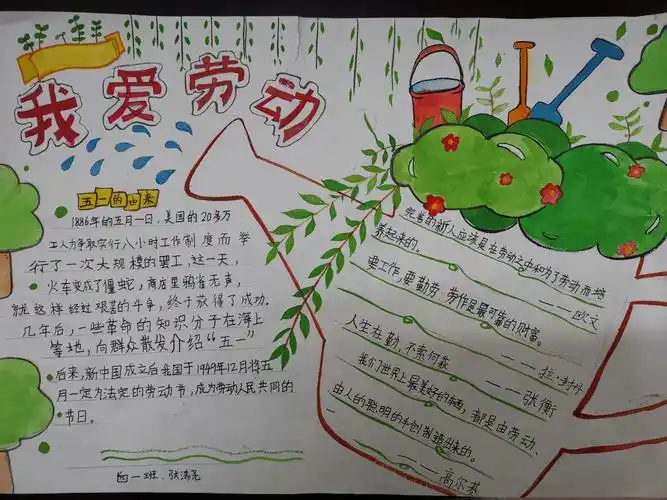 我爱劳动
五一的由来
1886年的五月一日,美国的20多万
工人为争取实行八小时工作制度而举
行了一次大规模的罢工,这一天,
火车变成了僵蛇,商店里鸦雀无声,
就这样经过艰苦的斗争,终于获得了成功。
几年后,一些革命的知识分子在海上
等地,向群众散发介绍“五一”
后来,新中国成立后我国于1949年12月将五
月一定为法定的劳动节,成为劳动人民共同的
节日。
四一班 张
完善的新人应该是在劳动之中和为了劳动而培
养起来的。
——欧文
要工作,要勤劳:劳作是最可靠的财富。
——拉·封丹
人生在勤,不索何获
——张衡
我们世界上最美好的东西,都是由劳动、
由人的聪明的手创造出来的。
——高尔基